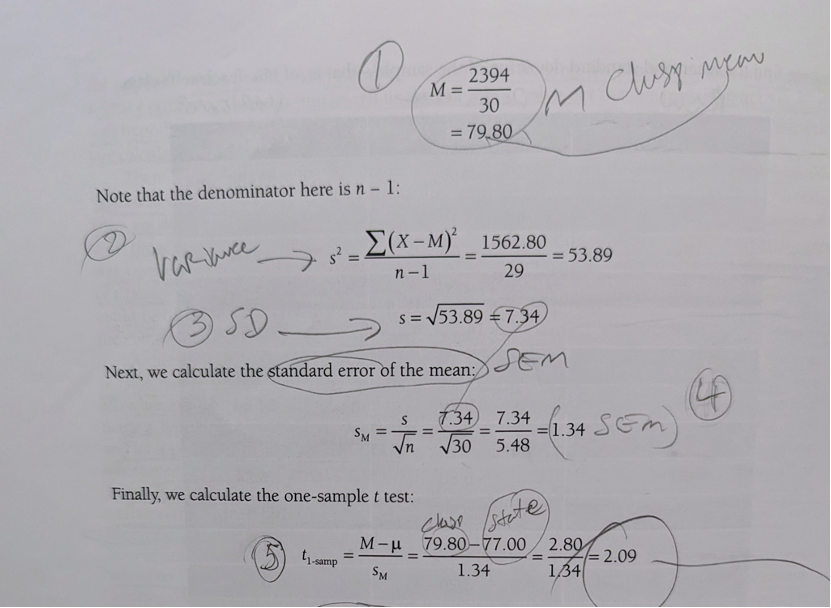 ① M = 2394/30 M Class mean
= 79.80
Note that the denominator here is n – 1:
② Variance → s² = ∑(X – M)²/n – 1 = 1562.80/29 = 53.89
③ SD → s = √53.89 = 7.34
Next, we calculate the standard error of the mean: SEM
④
s_M = s/√n = 7.34/√30 = 7.34/5.48 = 1.34 SEM
Finally, we calculate the one-sample t test:
class state
⑤ t_1-samp = M – μ/s_M = 79.80 – 77.00/1.34 = 2.80/1.34 = 2.09